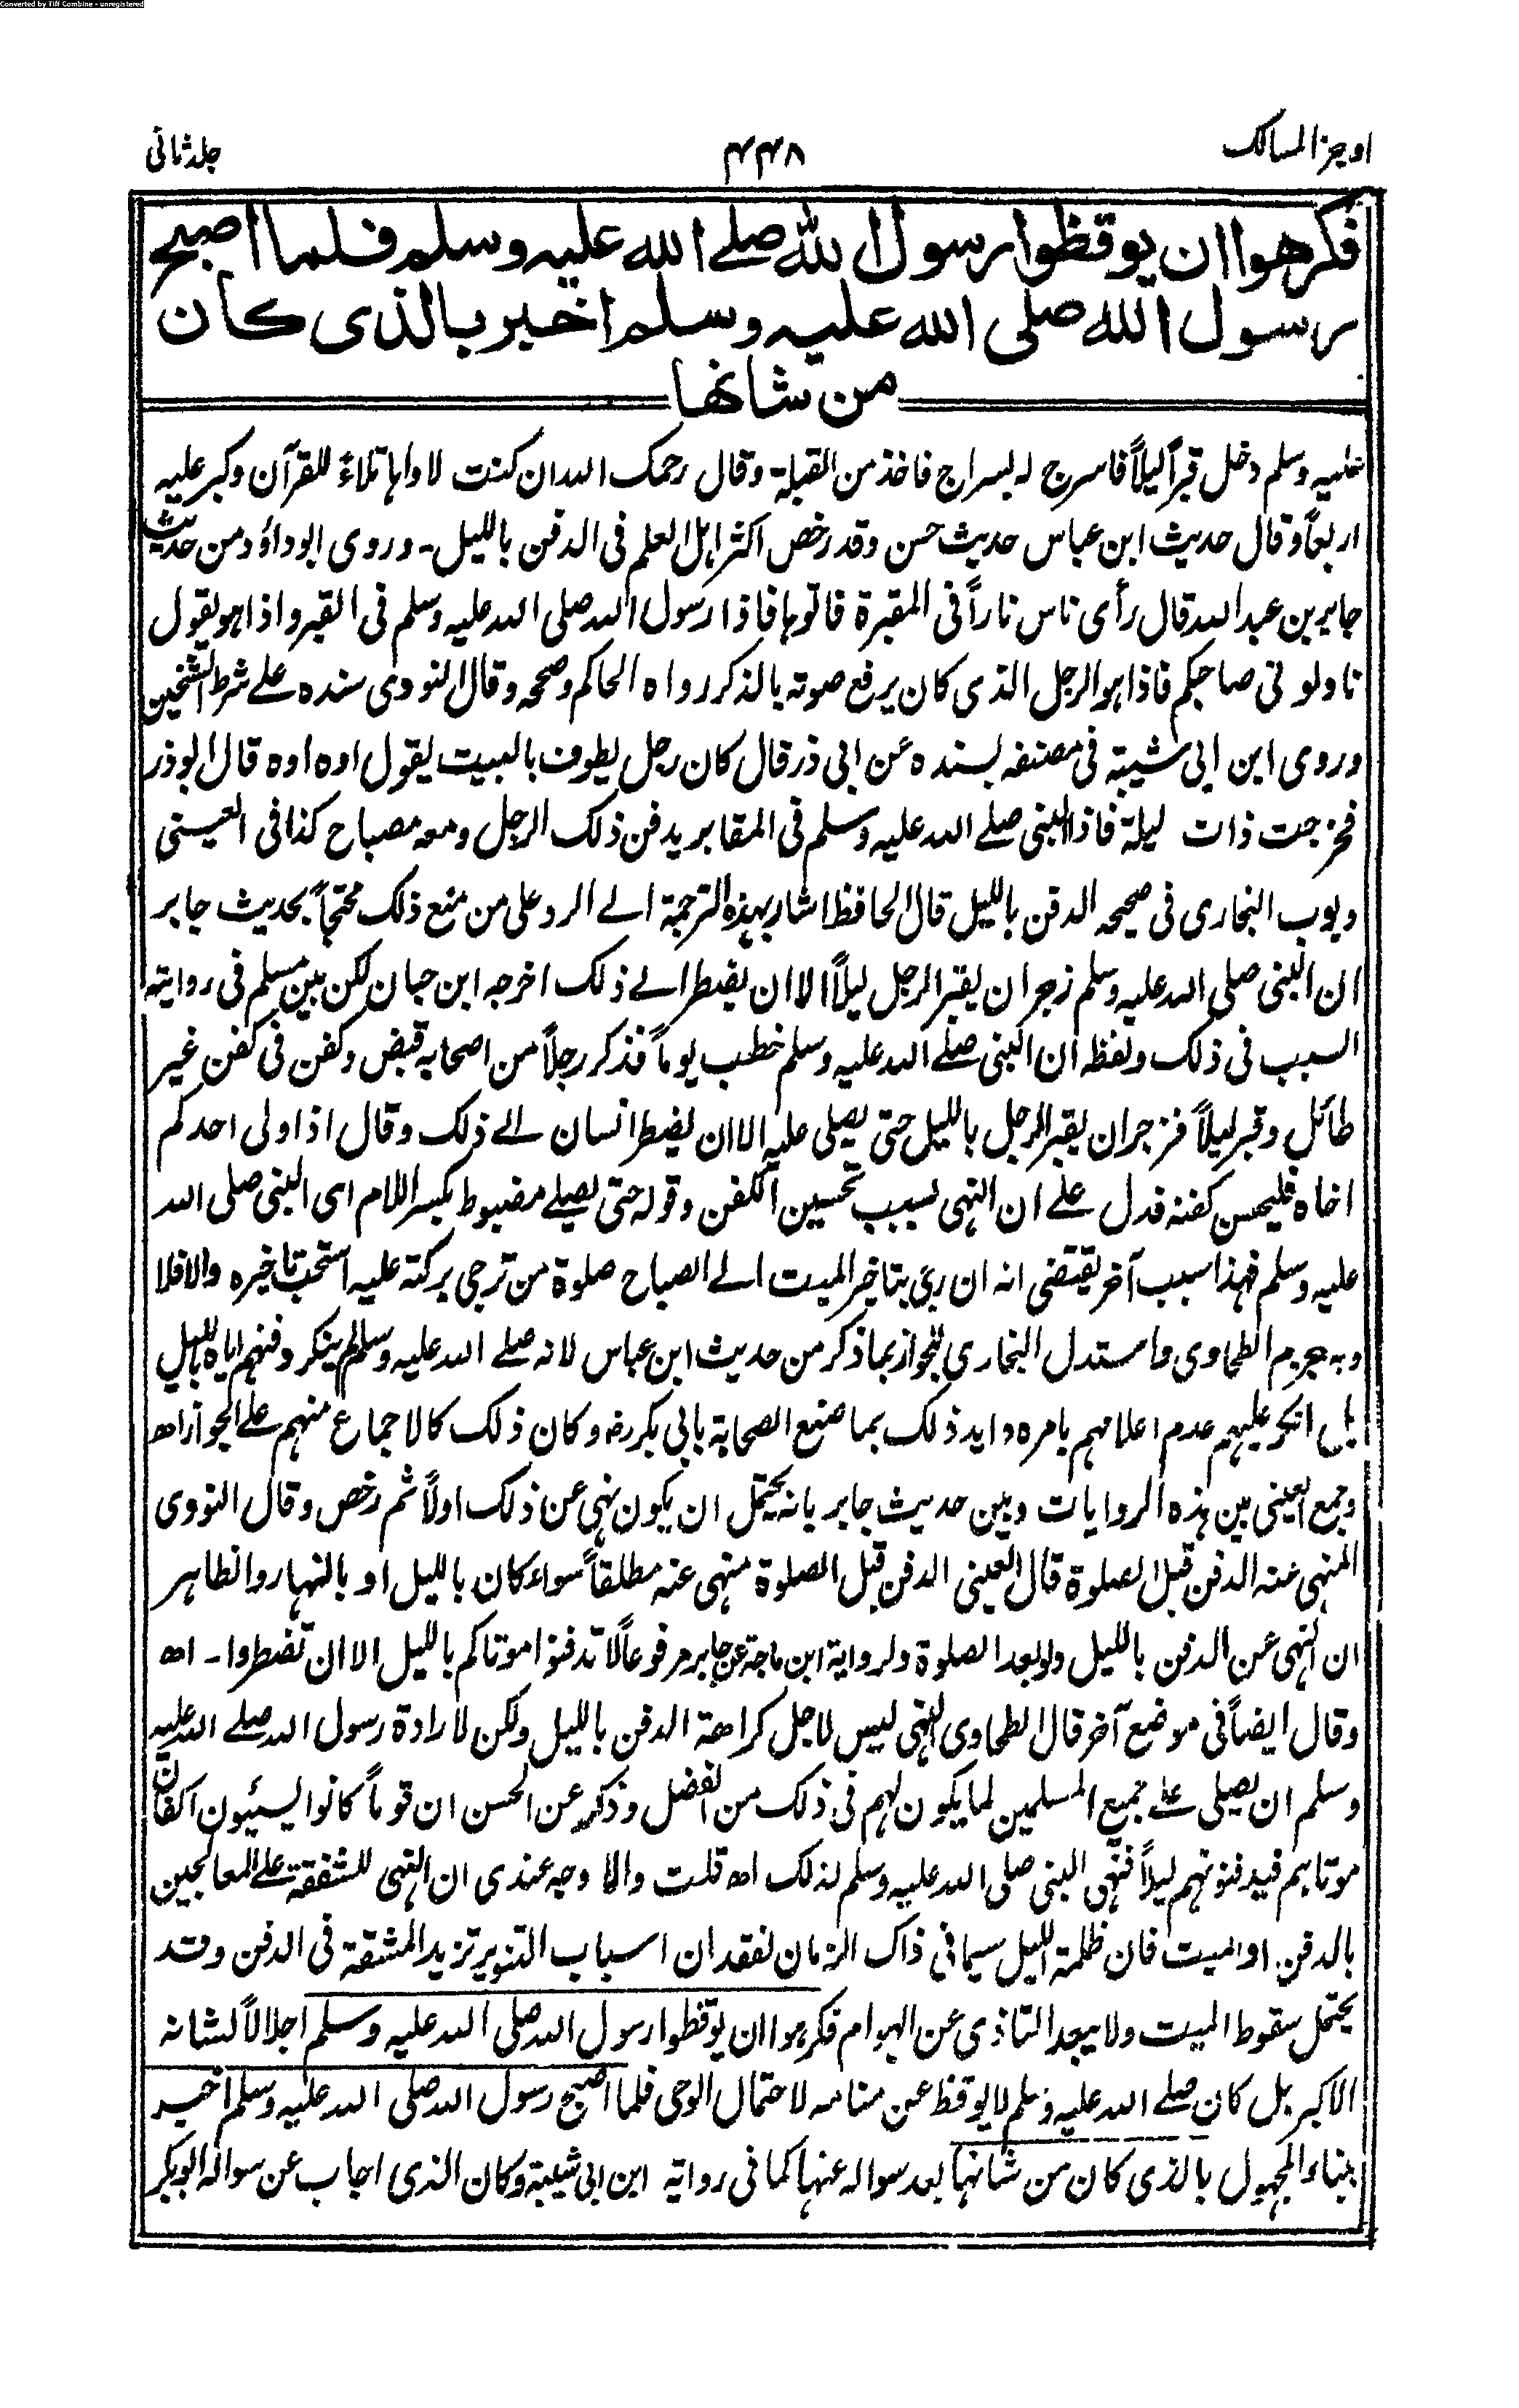 Converted by Tiff Combine - unregistered
اوجز المسالک
۴۴۸
جلد ثانی
فکرهوا ان یوقظوا رسول الله صلے الله علیه وسلم فلما اصبح
رسول الله صلی الله علیه وسلم اخبر بالذی کان
من شانها
علیه وسلم دخل قبراً لیلاً فاسرج له بسراج فاخذ من القبلة وقال رحمک الله ان کنت لاواها تلاءً للقرآن وکبر علیه
اربعاً وقال حدیث ابن عباس حدیث حسن وقد رخص اکثر اهل العلم فی الدفن باللیل۔ وروی ابوداؤد من حدیث
جابر بن عبد الله قال رأی ناس ناراً فی المقبرة فاتوها فاذا رسول الله صلی الله علیه وسلم فی القبر واذا هو یقول
ناولونی صاحبکم فاذا هو الرجل الذی کان یرفع صوته بالذکر رواه الحاکم وصححه وقال النووی سنده علے شرط الشیخین
وروی ابن ابی شیبة فی مصنفه بسنده عن ابی ذر قال کان رجل یطوف بالبیت یقول اوه اوه قال ابوذر
فخرجت ذات لیلة فاذا النبی صلے الله علیه وسلم فی المقابر یدفن ذلک الرجل ومعه مصباح کذا فی العینی
وبوب البخاری فی صحیحه الدفن باللیل قال الحافظ اشار بهذه الترجمة الے الرد علی من منع ذلک محتجاً بحدیث جابر
ان النبی صلی الله علیه وسلم زجر ان یقبر الرجل لیلاً الا ان یضطر الے ذلک اخرجه ابن حبان لکن بین مسلم فی روایته
السبب فی ذلک ولفظه ان النبی صلے الله علیه وسلم خطب یوماً فذکر رجلاً من اصحابه قبض وکفن فی کفن غیر
طائل وقبر لیلاً فزجر ان یقبر الرجل باللیل حتی یصلی علیه الا ان یضطر انسان الے ذلک وقال اذا ولی احدکم
اخاه فلیحسن کفنه فدل علے ان النهی بسبب تحسین الکفن وقوله حتی یصلے مضبوط بکسر اللام ای النبی صلی الله
علیه وسلم فهذا سبب آخر یقتضی انه ان رجی بتاخیر المیت الے الصباح صلوة من ترجی برکته علیه استحب تاخیره والا فلا
وبه جزم الطحاوی واستدل البخاری للجواز بما ذکر من حدیث ابن عباس لانه صلے الله علیه وسلم لم ینکر دفنهم ایاه باللیل
بل انکر علیهم عدم اعلامهم بامره واید ذلک بما صنع الصحابة بابی بکر رضـ وکان ذلک کالاجماع منهم علے الجواز اھ
وجمع العینی بین هذه الروایات وبین حدیث جابر بانه یحتمل ان یکون نهی عن ذلک اولاً ثم رخص وقال النووی
المنهی عنه الدفن قبل الصلوة قال العینی الدفن قبل الصلوة منهی عنه مطلقاً سواء کان باللیل او بالنهار والظاهر
ان النهی عن الدفن باللیل ولو بعد الصلوة ولروایة ابن ماجة عن جابر مرفوعاً لا تدفنوا موتاکم باللیل الا ان تضطروا۔ اھ
وقال ایضاً فی موضع آخر قال الطحاوی النهی لیس لاجل کراهة الدفن باللیل ولکن لارادة رسول الله صلے الله علیه
وسلم ان یصلی علے جمیع المسلمین لما یکون لهم فی ذلک من الفضل وذکر عن الحسن ان قوماً کانوا یسیئون اکفان
موتاهم فیدفنونهم لیلاً فنهی النبی صلی الله علیه وسلم لذلک اھ قلت والاوجه عندی ان النهی للشفقة علے المعالجین
بالدفن او المیت فان ظلمة اللیل سیما فی ذاک الزمان لفقدان اسباب التنویر تزید المشقة فی الدفن وقد
یحتمل سقوط المیت ولا یبعد التاذی عن الهوام فکرهوا ان یوقظوا رسول الله صلی الله علیه وسلم اجلالاً لشانه
الاکبر بل کان صلے الله علیه وسلم لا یوقظ عن منامه لاحتمال الوحی فلما اصبح رسول الله صلی الله علیه وسلم اخبر
بناء المجهول بالذی کان من شانها بعد سواله عنها کما فی روایة ابن ابی شیبة وکان الذی اجاب عن سواله ابوبکر